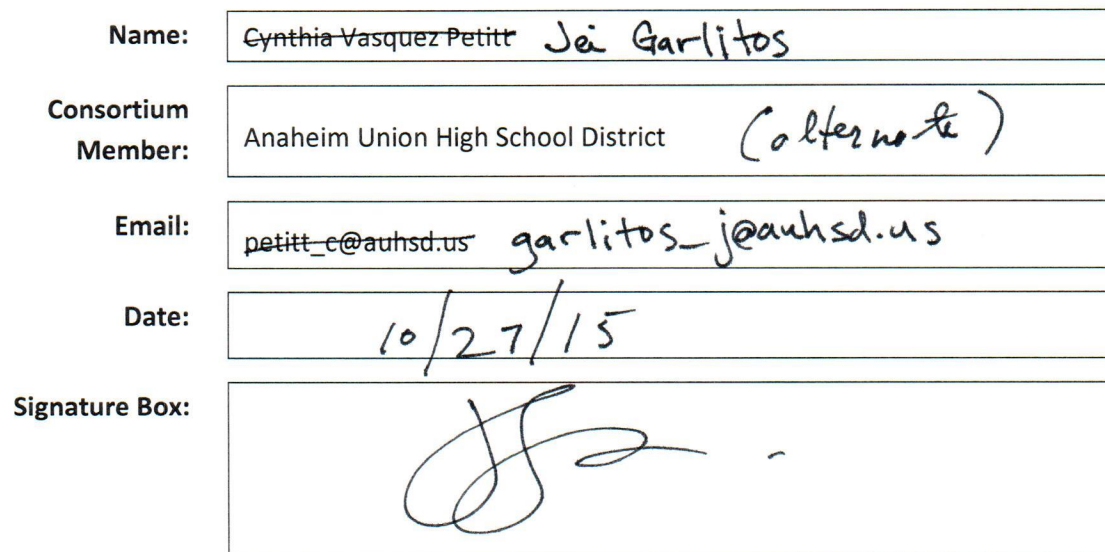 Name: Cynthia Vasquez Petitt Jei Garlitos
Consortium
Member: Anaheim Union High School District (alternate)
Email: petitt_c@auhsd.us garlitos_j@auhsd.us
Date: 10/27/15
Signature Box: